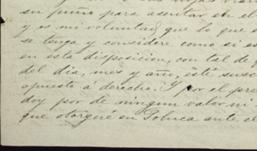 su puño para asentar en el
y es mi voluntad, que lo que es
se tenga y considere como si es
en esta disposicion, con tal de q
del dia, mes y año, esté susc
opuesto á derecho. Y por el pre
doy por de ningun valor ni
que otorgué en Toluca ante el